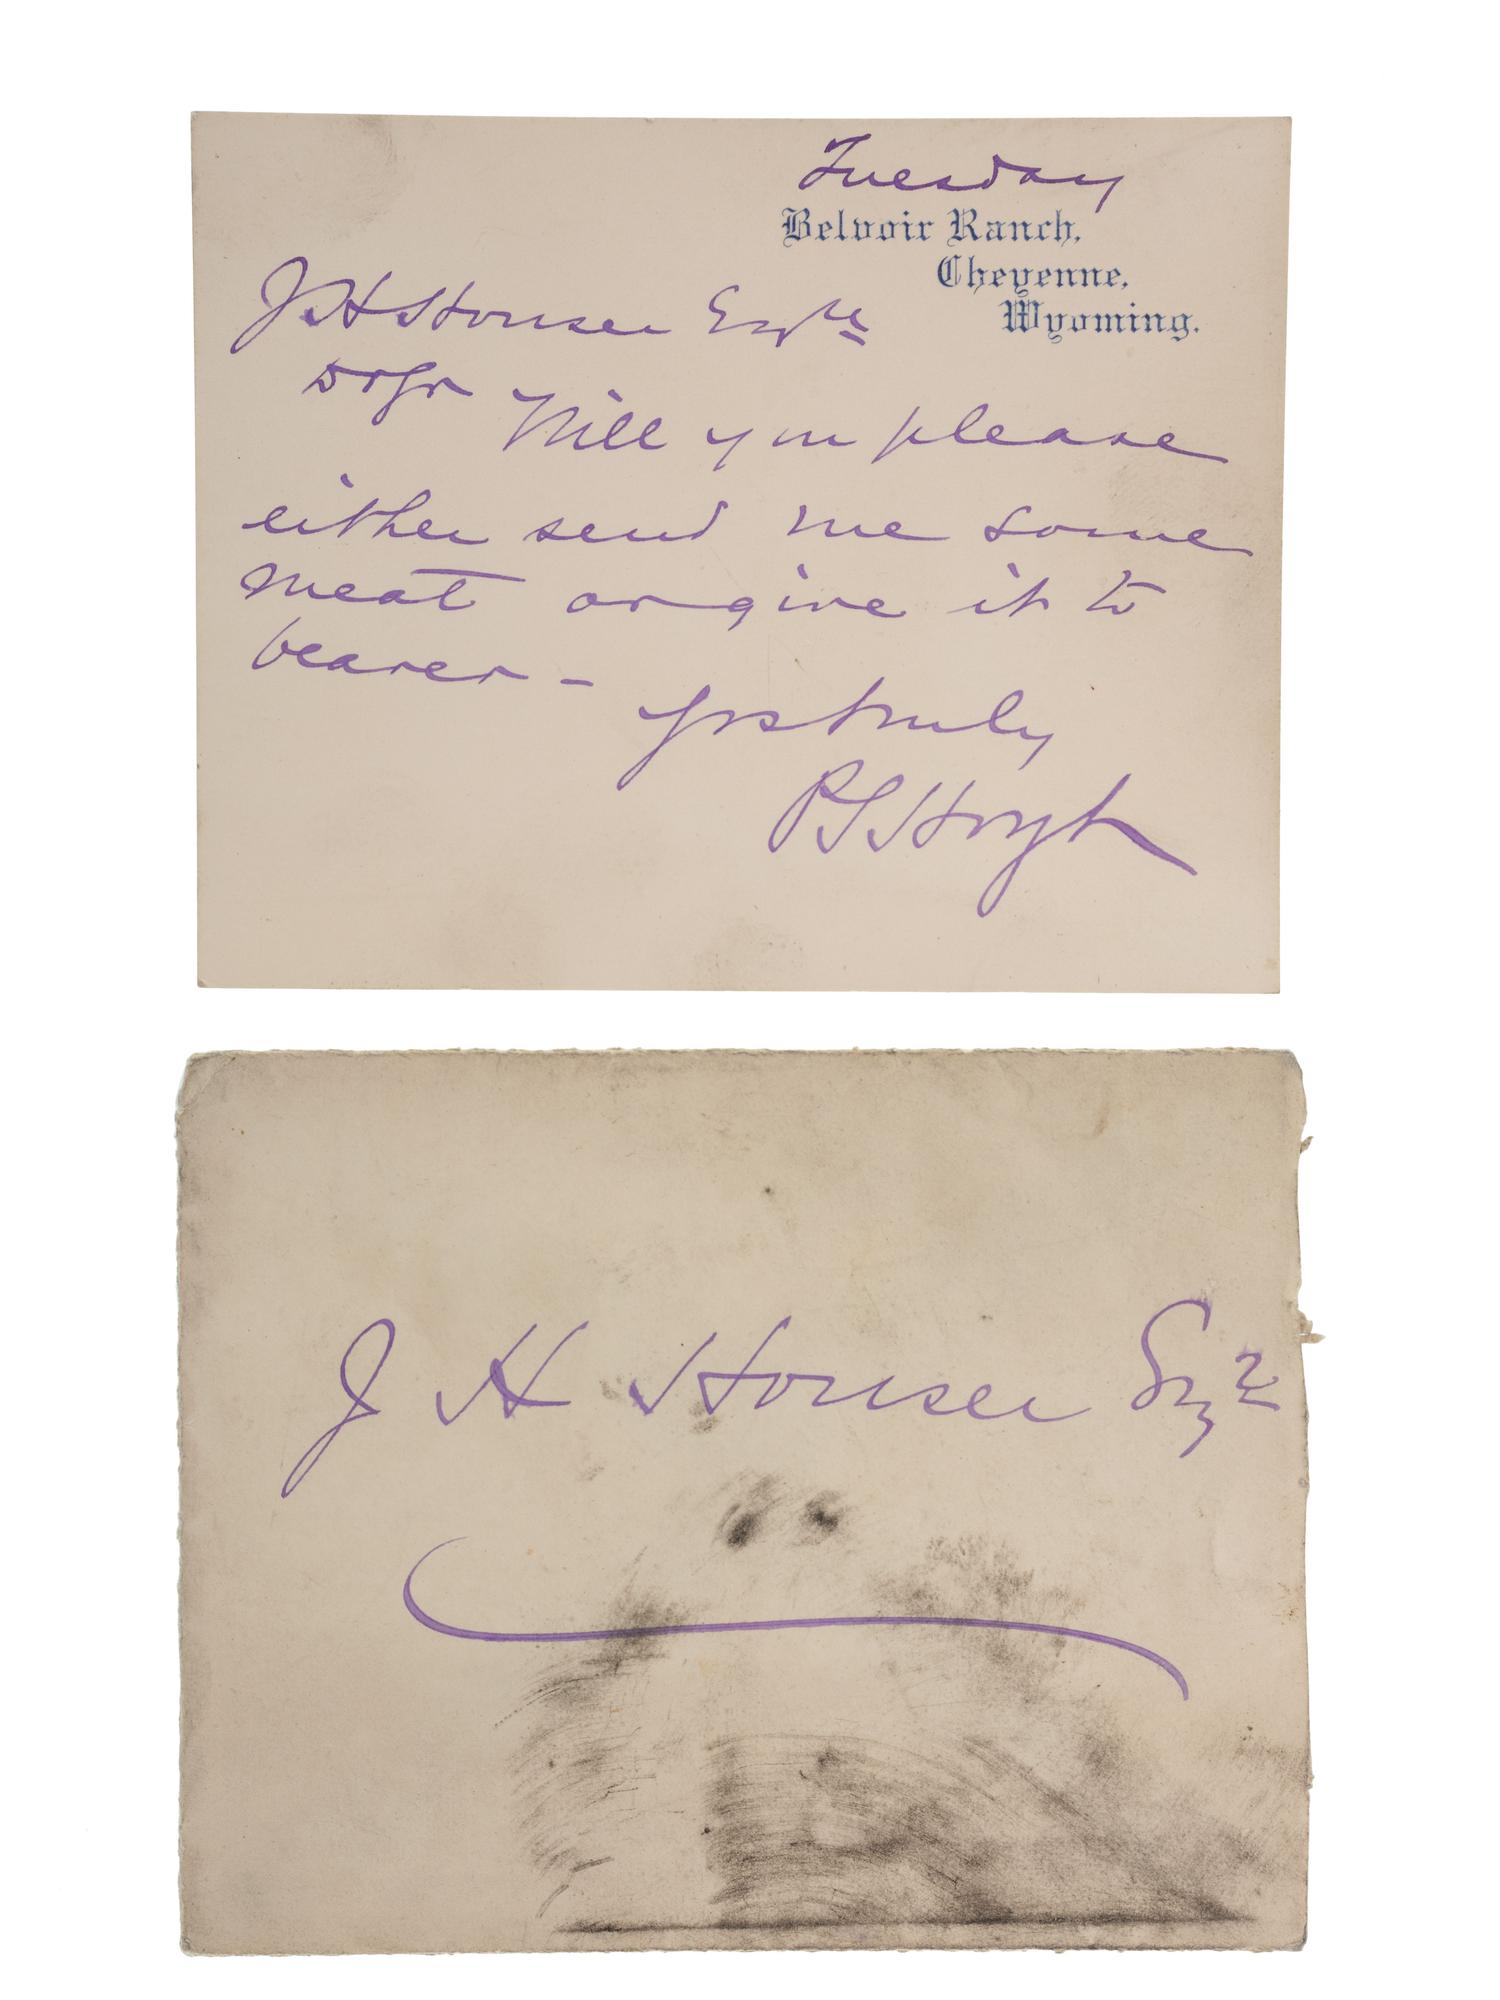 Tuesday
Belvoir Ranch,
Cheyenne,
Wyoming.
J H Houser Esqre
Dr Sir
Will you please
either send me some
meat or give it to
bearer -
yrs truly
P S Hoyt
J H Houser Esqre